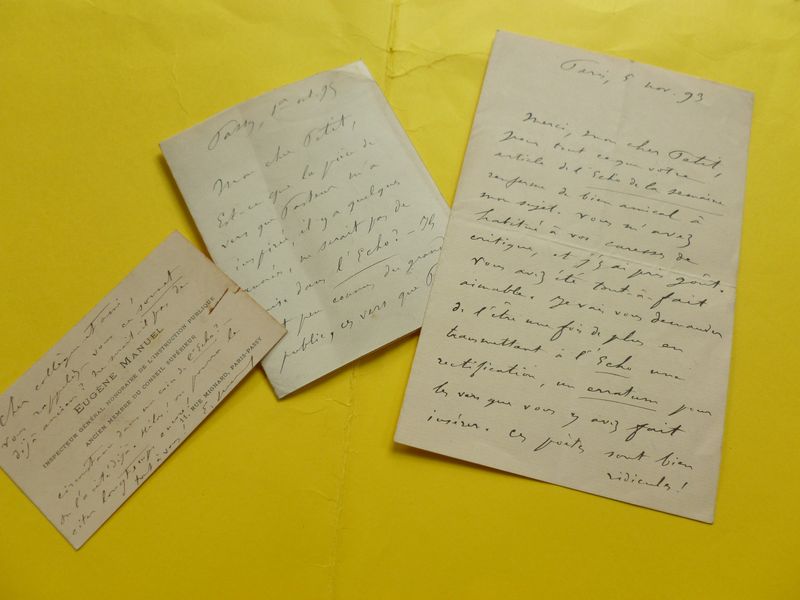 Cher collègue & ami,
vous rappelez-vous ce sonnet
déjà ancien? Ne serait-il pas de
EUGÈNE MANUEL
INSPECTEUR GÉNÉRAL HONORAIRE DE L'INSTRUCTION PUBLIQUE
ANCIEN MEMBRE DU CONSEIL SUPÉRIEUR
11, RUE MIGNARD, PARIS-PASSY
circonstance dans un coin de l'Echo? –
citer longtemps encore,
tout à vous
Passy, 1er oct. 95
Mon cher Petit,
Est-ce que la pièce de
vers que Pasteur m'a
inspirée, il y a quelques
ne serait pas de
mise dans l'Echo? – Ils
peu connus du grand
public, ces vers que
Paris, 5 nov. 93
Merci, mon cher Petit,
pour tout ce que votre
article de l'Echo de la semaine
renferme de bien amical à
mon sujet. Vous m'avez
habitué à vos caresses de
critique, et j'y ai pris goût.
Vous avez été tout-à-fait
aimable. Je vais vous demander
de l'être une fois de plus en
transmettant à l'Echo une
rectification, un erratum pour
les vers que vous y avez fait
insérer. Ces poètes sont bien
ridicules!